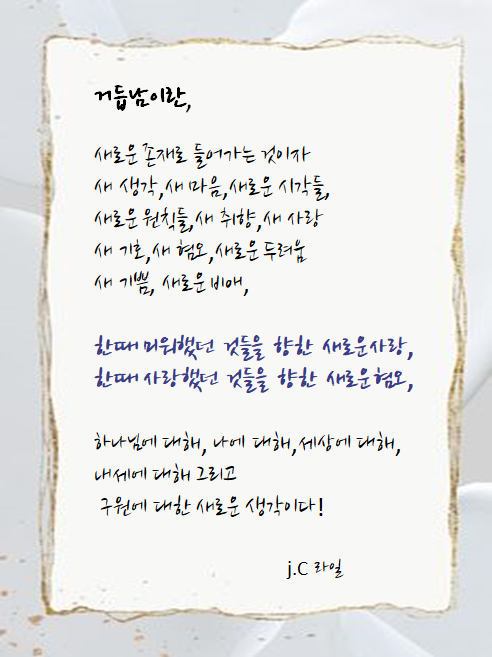 거듭남이란,
새로운 존재로 들어가는 것이자
새 생각,새 마음,새로운 시각들,
새로운 원칙들,새 취향,새 사랑
새 기호,새 혐오,새로운 두려움
새 기쁨, 새로운 비애,
한때 미워했던 것들을 향한 새로운사랑,
한때 사랑했던 것들을 향한 새로운혐오,
하나님에 대해, 나에 대해,세상에 대해,
내세에 대해 그리고
구원에 대한 새로운 생각이다!
j.C 라일